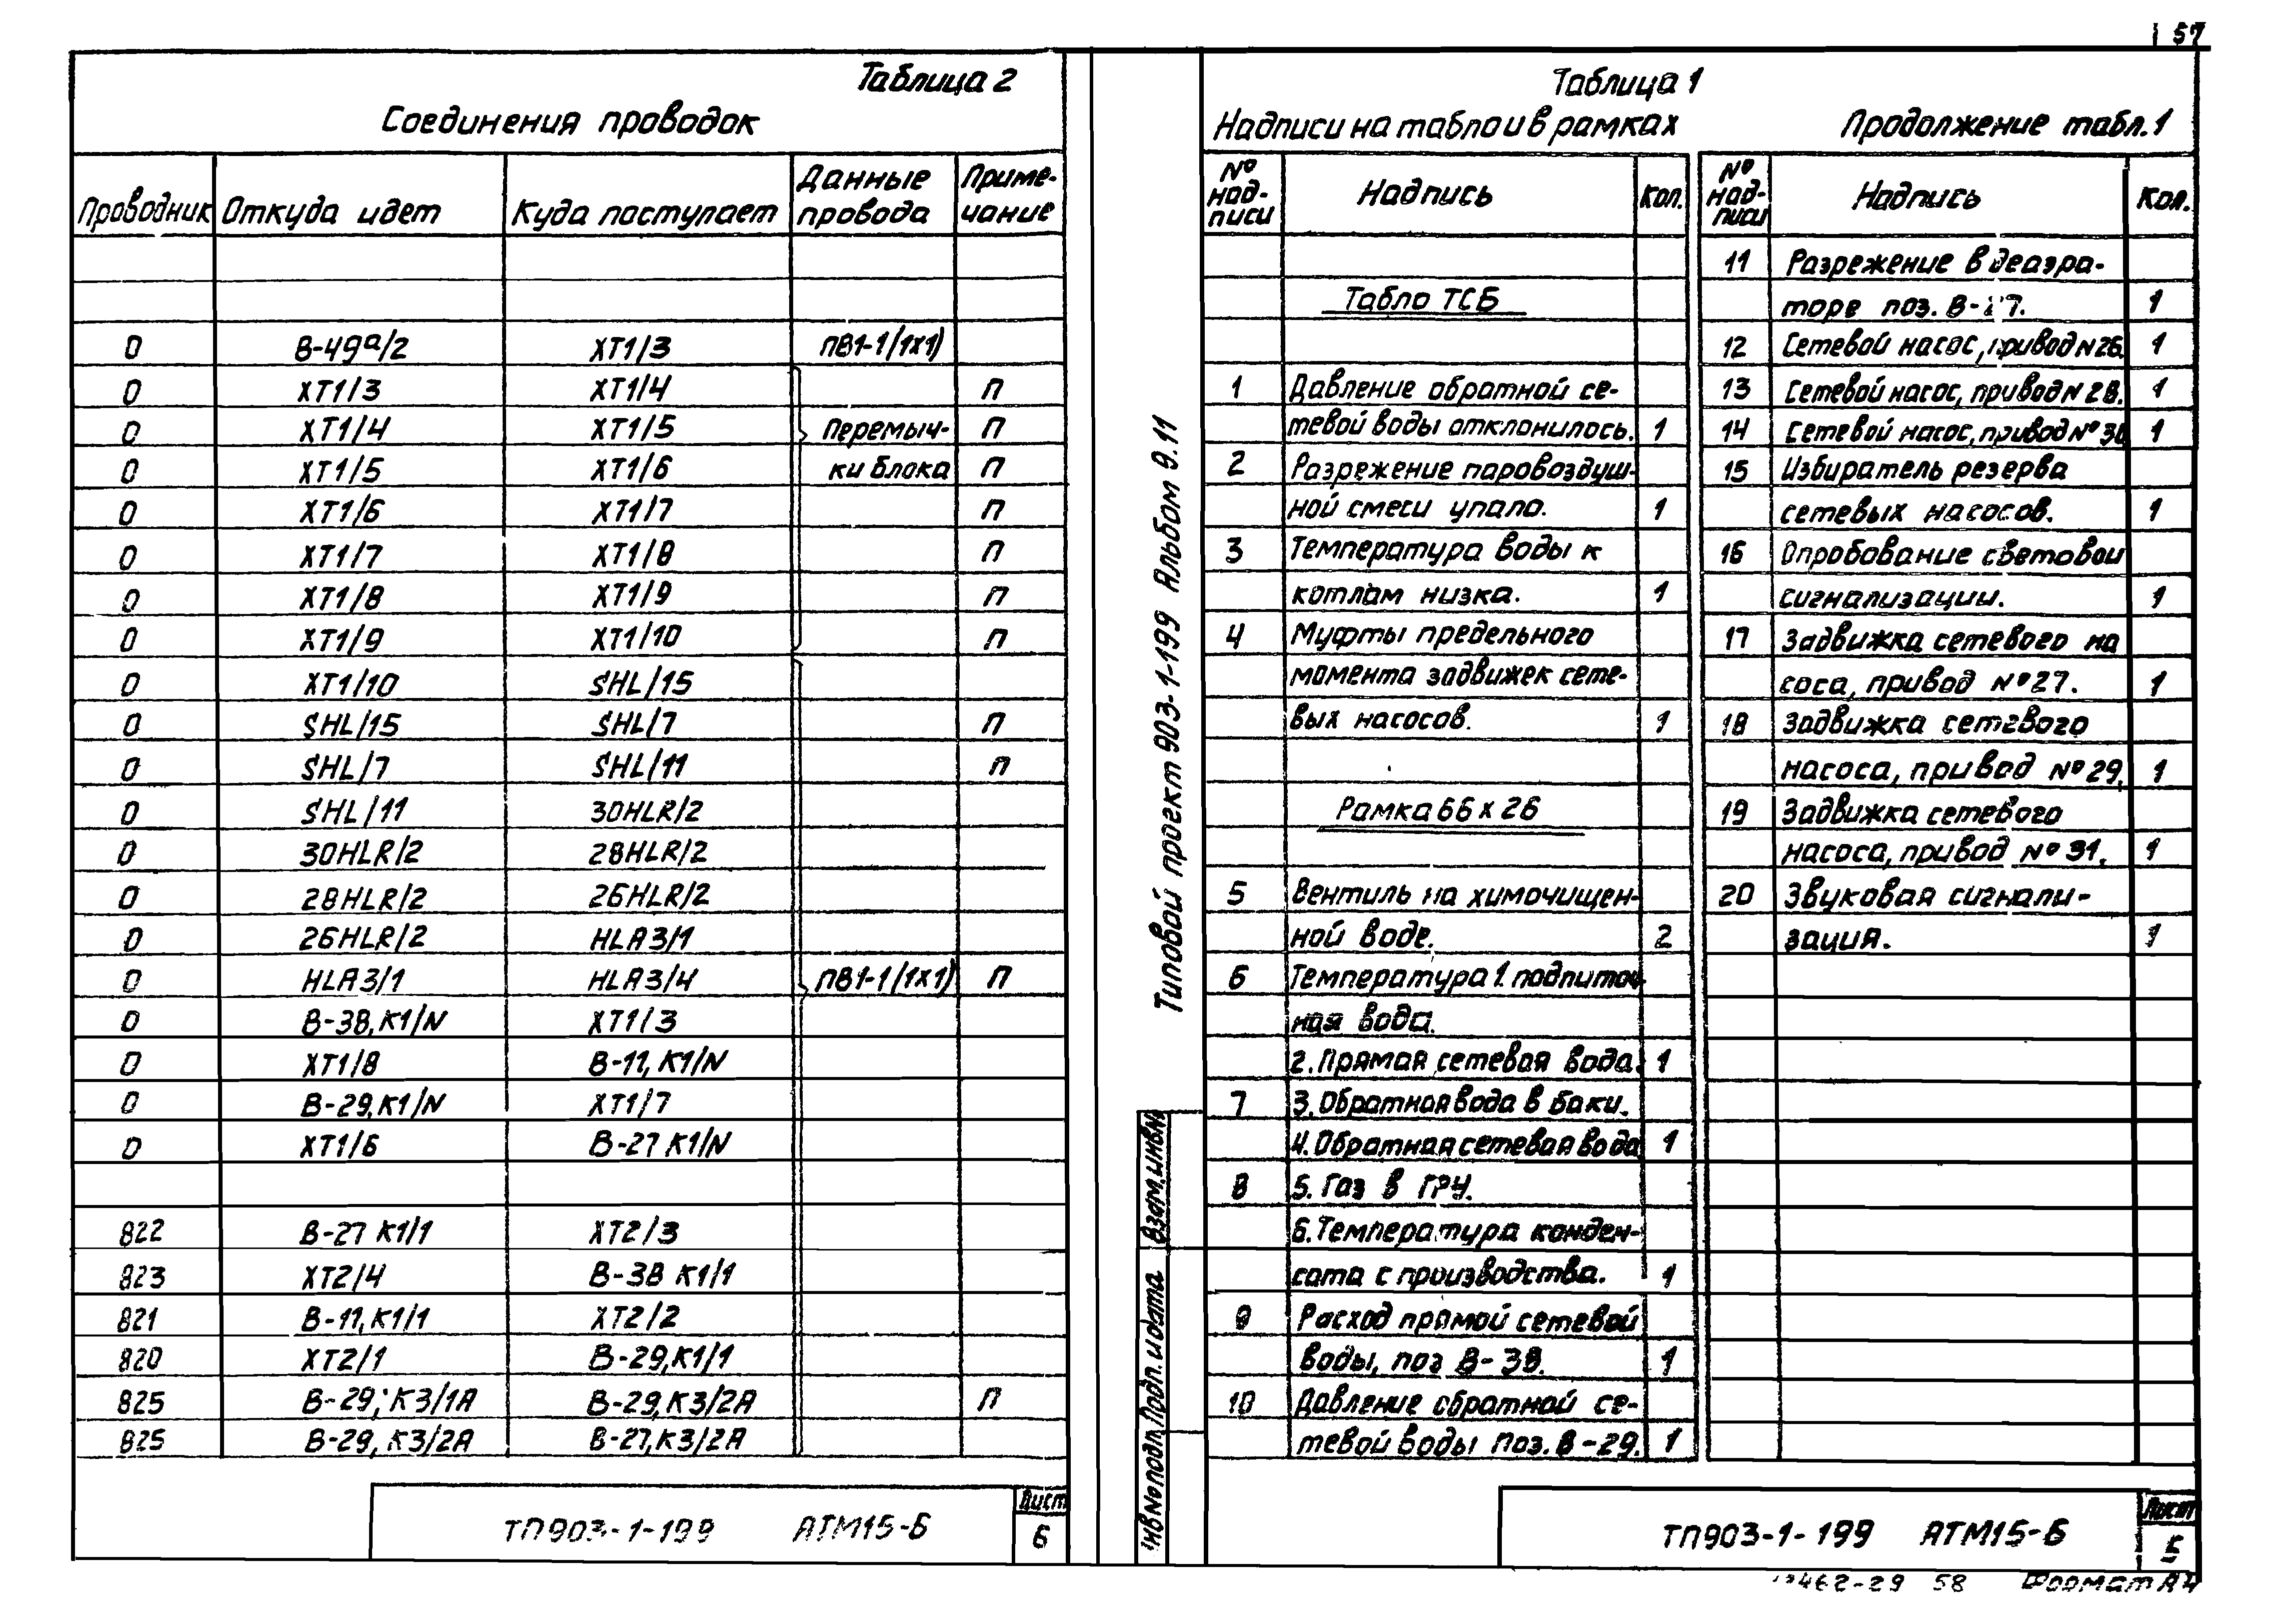 57
Таблица 2
Соединения проводок
Проводник Откуда идет Куда поступает Данные провода Примечание
0 В-49а/2 ХТ1/3 ПВ1-1/1х1)
0 ХТ1/3 ХТ1/4 П
0 ХТ1/4 ХТ1/5 Перемыч- П
0 ХТ1/5 ХТ1/6 ки блока П
0 ХТ1/6 ХТ1/7 П
0 ХТ1/7 ХТ1/8 П
0 ХТ1/8 ХТ1/9 П
0 ХТ1/9 ХТ1/10 П
0 ХТ1/10 SHL/15
0 SHL/15 SHL/7 П
0 SHL/7 SHL/11 П
0 SHL/11 30HLR/2
0 30HLR/2 28HLR/2
0 28HLR/2 26HLR/2
0 26HLR/2 HLA3/1
0 HLA3/1 HLA3/4 ПВ1-1/1х1) П
0 В-38,К1/N ХТ1/3
0 ХТ1/8 В-11,К1/N
0 В-29,К1/N ХТ1/7
0 ХТ1/6 В-27 К1/N
822 В-27 К1/1 ХТ2/3
823 ХТ2/4 В-38 К1/1
821 В-11,К1/1 ХТ2/2
820 ХТ2/1 В-29,К1/1
825 В-29, К3/1А В-29,К3/2А П
825 В-29, К3/2А В-27,К3/2А
ТП903-1-199 АТМ15-Б
Лист
6
Типовой проект 903-1-199 Альбом 9.11
Взам.инв№
Подп. и дата
Инв№подл.
Таблица 1
Надписи на табло и в рамках
№ над-писи Надпись Кол.
Табло ТСБ
1 Давление обратной се-
тевой воды отклонилось. 1
2 Разрежение паровоздуш-
ной смеси упало. 1
3 Температура воды к
котлам низка. 1
4 Муфты предельного
момента задвижек сете-
вых насосов. 1
Рамка 66 х 26
5 Вентиль на химочищен-
ной воде. 2
6 Температура 1. подпиточ
ная вода.
2. Прямая сетевая вода. 1
7 3. Обратная вода в баки.
4. Обратная сетевая вода 1
8 5. Газ в ГРУ.
6. Температура конден-
сата с производства. 1
9 Расход прямой сетевой
воды, поз В-38. 1
10 Давление обратной се-
тевой воды поз. В-29. 1
Продолжение табл.1
№ над-писи Надпись Кол.
11 Разрежение в деаэра-
торе поз. В-27. 1
12 Сетевой насос, привод N26. 1
13 Сетевой насос, привод N 28. 1
14 Сетевой насос, привод № 30 1
15 Избиратель резерва
сетевых насосов. 1
16 Опробование световой
сигнализации. 1
17 Задвижка сетевого на
соса, привод №27. 1
18 Задвижка сетевого
насоса, привод №29. 1
19 Задвижка сетевого
насоса, привод № 31. 1
20 Звуковая сигнали-
зация. 1
ТП903-1-199 АТМ15-Б
Лист
5
462-29 58 Формат А4